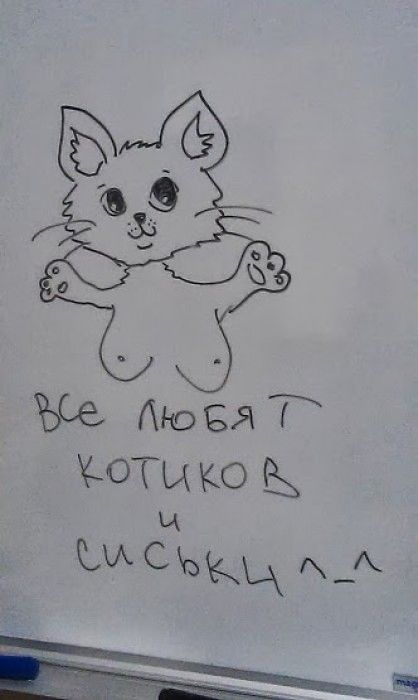 все любят
котиков
и
сиськи ^_^